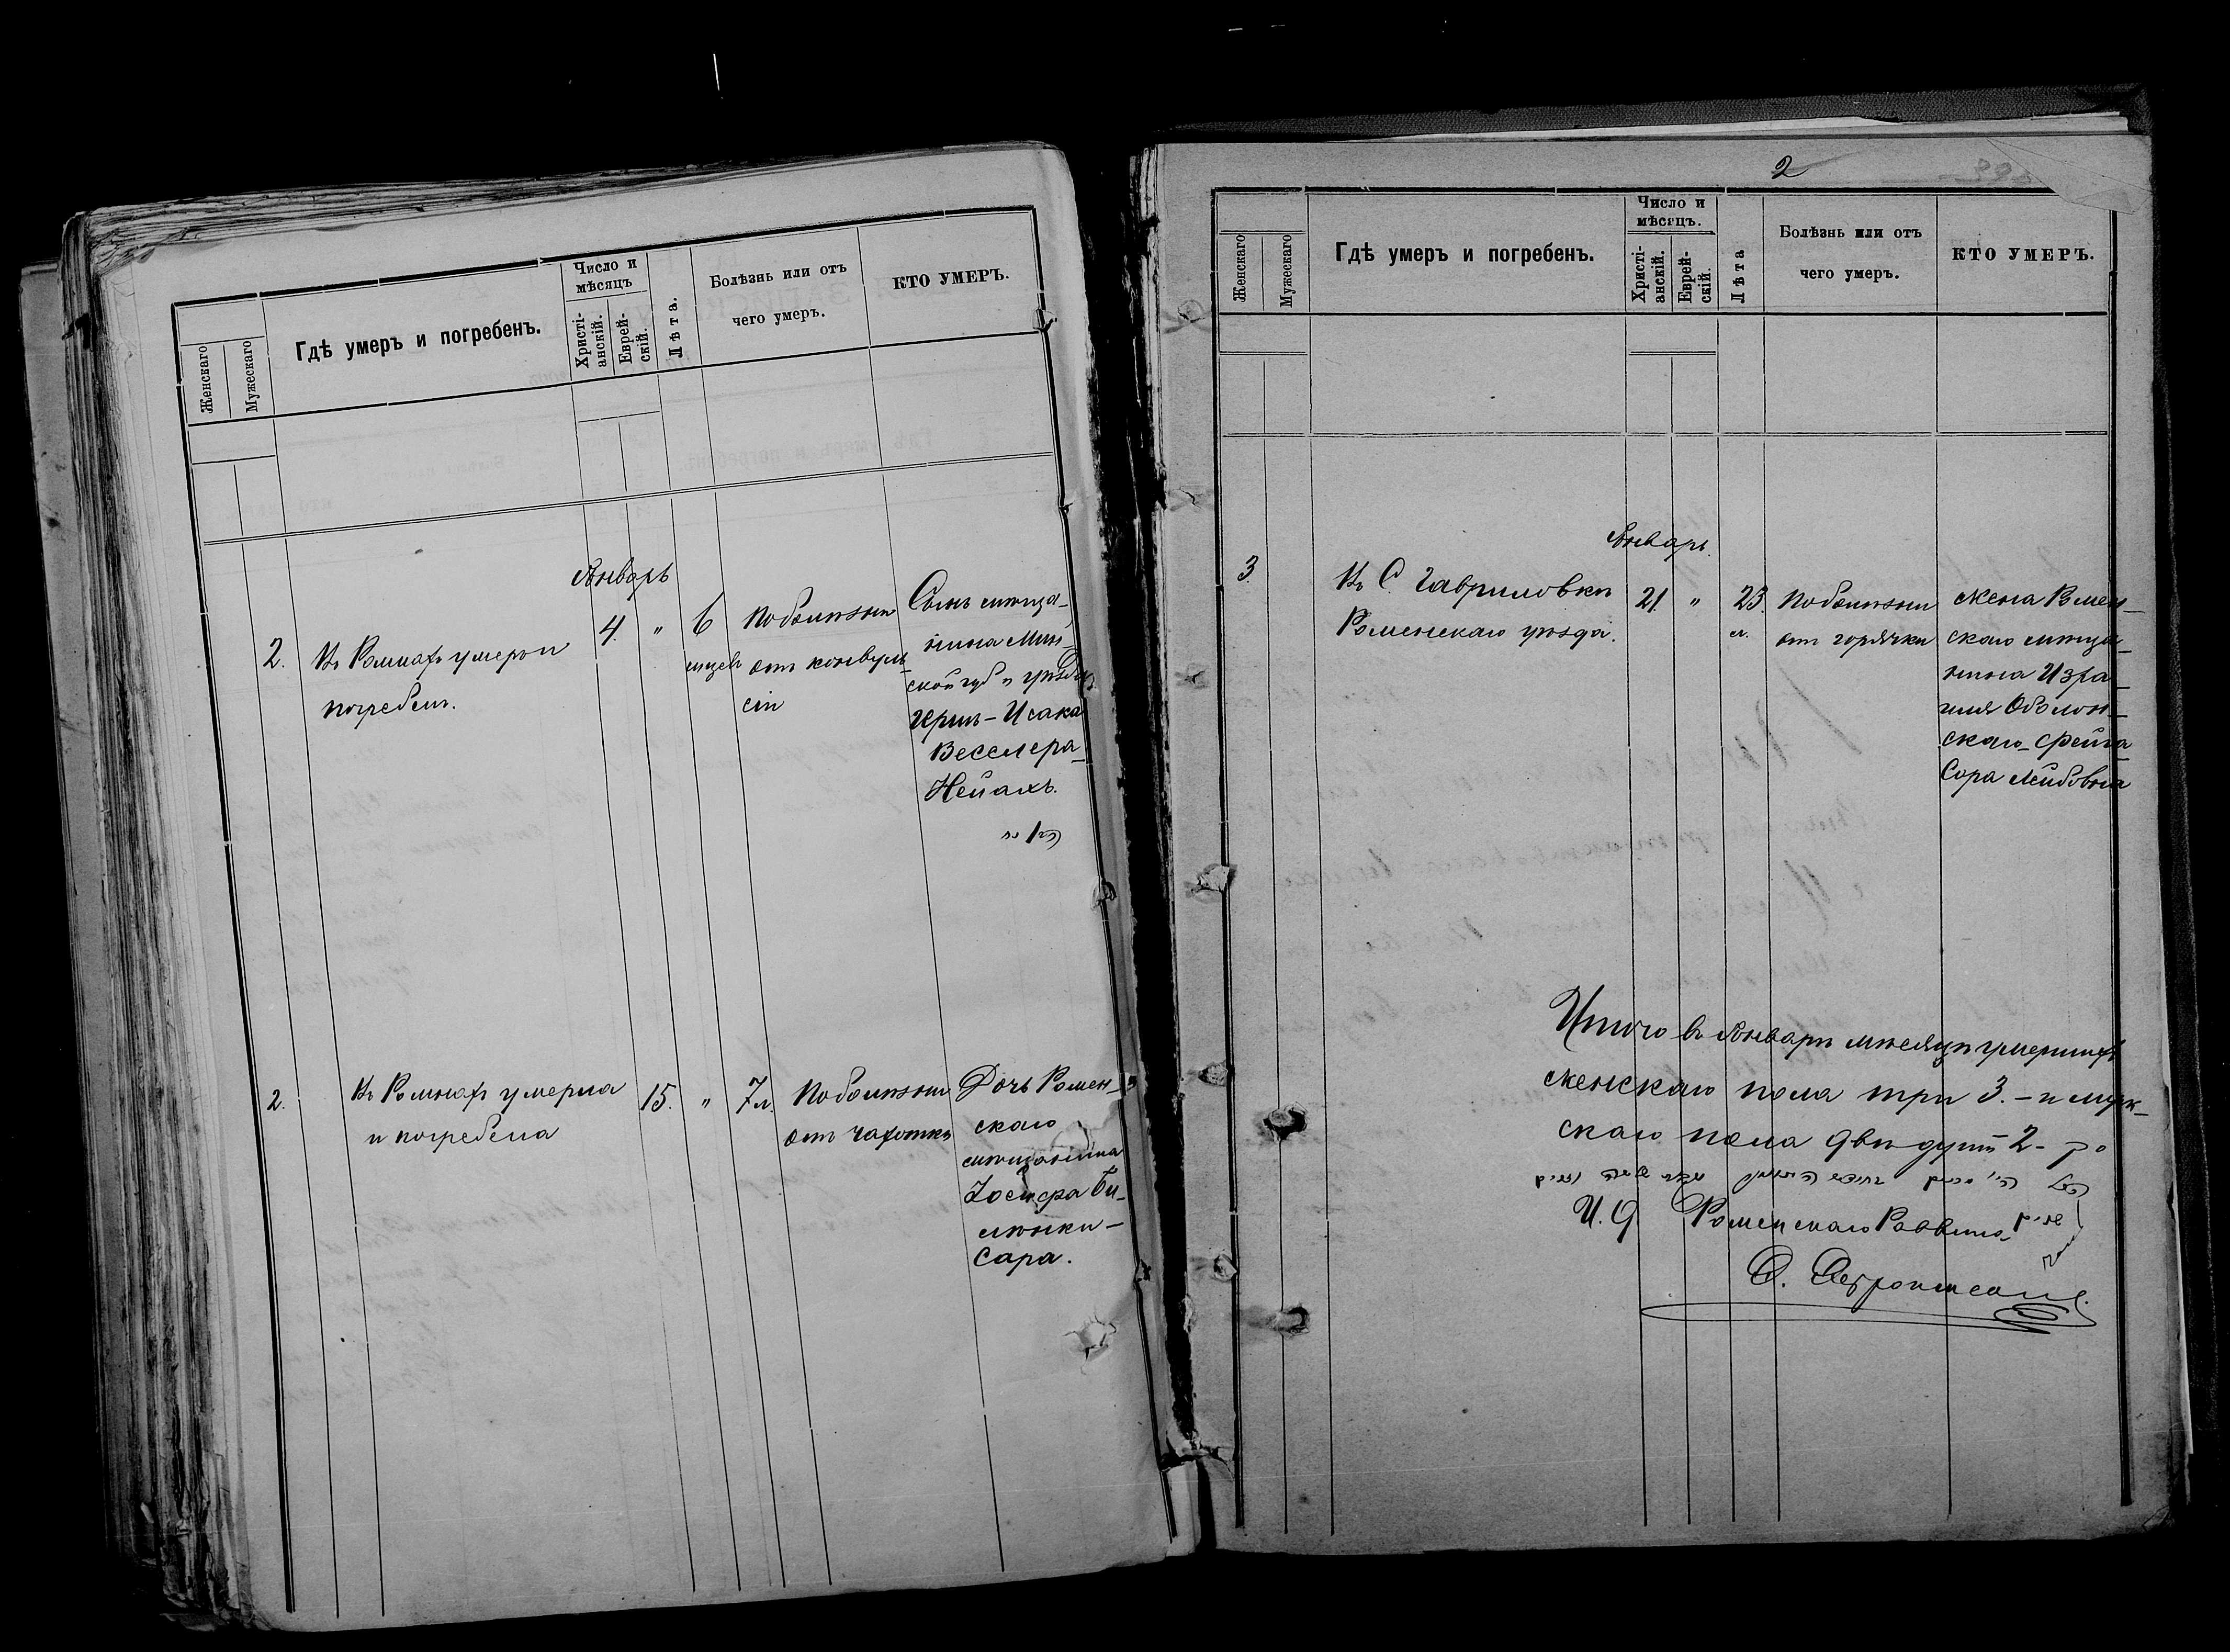 Женскаго
Мужескаго
Гдѣ умеръ и погребенъ.
Число и
мѣсяцъ
Христі-
анскій.
Еврей-
скій.
Лѣта.
Болѣзнь или отъ
чего умеръ.
КТО УМЕРЪ.
Январь
2.
Въ Ромнахъ умеръ и
погребенъ.
4.
"
6
мцев
по болѣзни
отъ конвуль-
сіи
Сынъ мѣща-
нина Мин-
ской губ и уѣзда
Герш-Исака
Весслера-
Нейахъ.
2.
Въ Ромнахъ умерла
и погребена
15.
"
7 л.
по болѣзни
отъ чахотки
Дочь Ромен-
скаго
мѣщанина
Іосифа Би-
Сара.
2
Женскаго
Мужескаго
Гдѣ умеръ и погребенъ.
Число и
мѣсяцъ.
Христі-
анскій.
Еврей-
скій.
Лѣта
Болѣзнь или отъ
чего умеръ.
КТО УМЕРЪ.
Январь.
3.
Въ С. Гавриловки
Роменскаго уѣзда.
21.
"
23
л.
по болѣзни
отъ горячки
жена Ромен-
скаго мѣща-
нина Изра-
иля Оболон-
скаго-Фейга
Сора Лейбовна
Итого въ Январѣ мѣсяцѣ умершихъ
женскаго пола три 3. - и муж-
скаго пола двѣ душѣ 2-
И. Д. Роменскаго Раввина